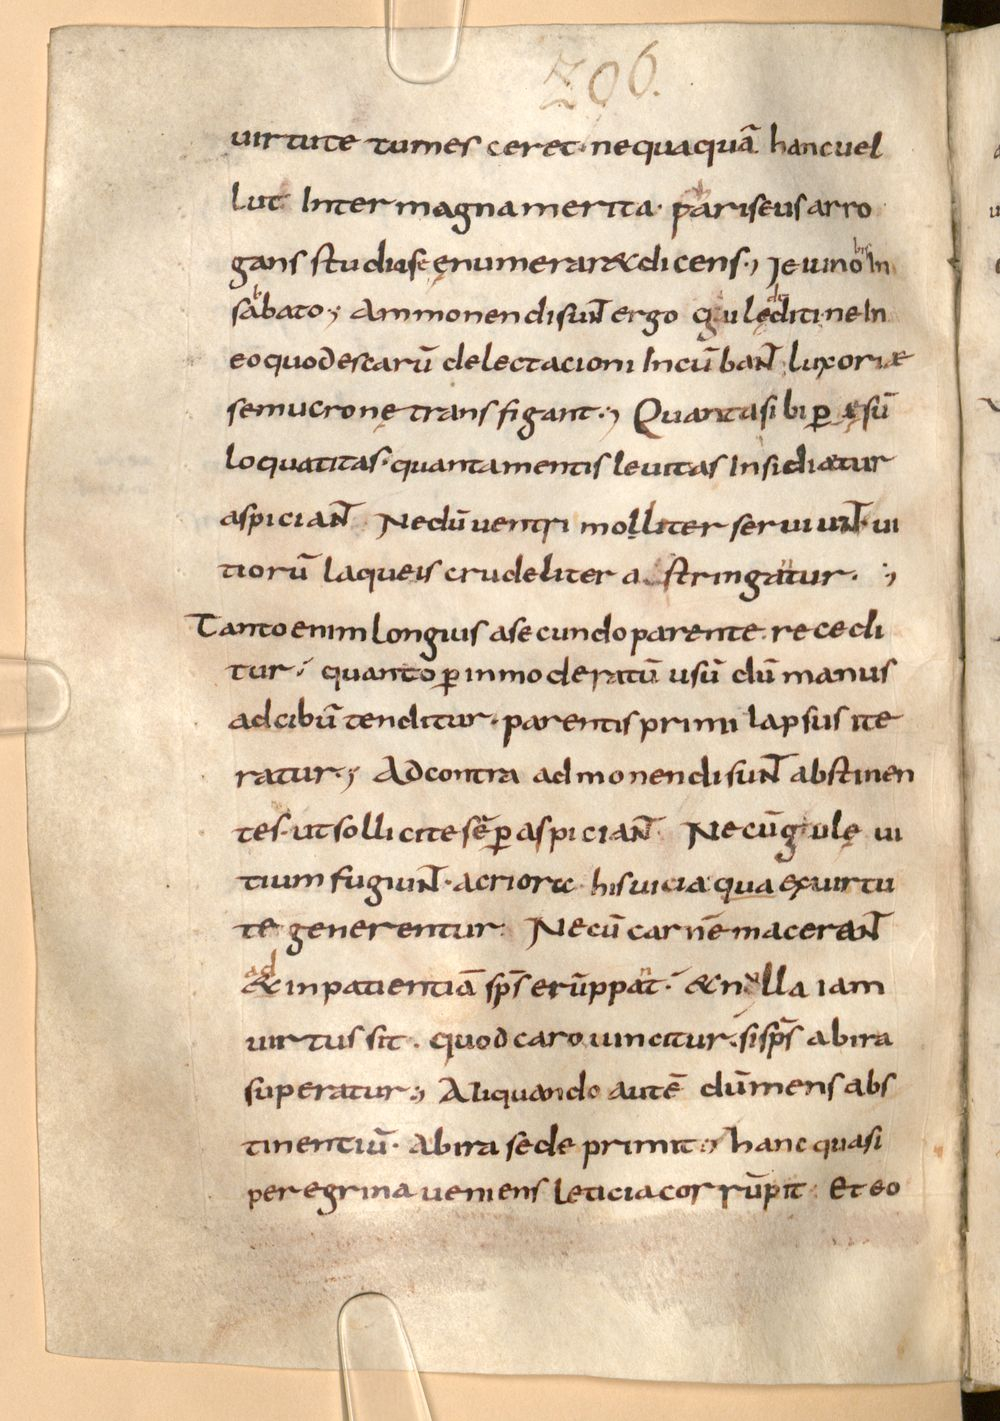 206.
uirtute tumesceret· nequaquā hanc uel
lut Inter magna merita· pariseus arro
gans studiose enumeraret dicens·; Ieiuno bis In
sabbato·; Ammonendi sunt ergo gule dediti ne In
eo quod escarū delectacioni Incūbant luxoriae
se mucrone transfigant·; Quanta sibi ꝑ ęsū
loquatitas· quanta mentis leuitas Insidiatur
aspiciant Ne dū uentri molliter seruiunt· ui
tiorū laqueis crudeliter a stringantur· ;
Tanto enim longius a secundo parente recedi
tur· quanto ꝑ inmoderatū usū dū manus
ad cibū tenditur· parentis primi lapsus ite
ratur·; Ad contra admonendi sunt abstinen
tes· ut sollicite sēꝑ aspiciant Ne cū gulę ui
tium fugiunt· acriora his uicia qua ex uirtu
te generentur· Ne cū carnē macerant
ad & inpatientiā sp̄s erūppant· & nulla iam
uirtus sit· quod caro uincitur· si sp̄s ab ira
superatur·; Aliquando autē dū mens abs
tinentiū· ab ira se deprimit·; hanc quasi
peregrina ueniens leticia corrūpit Et eo